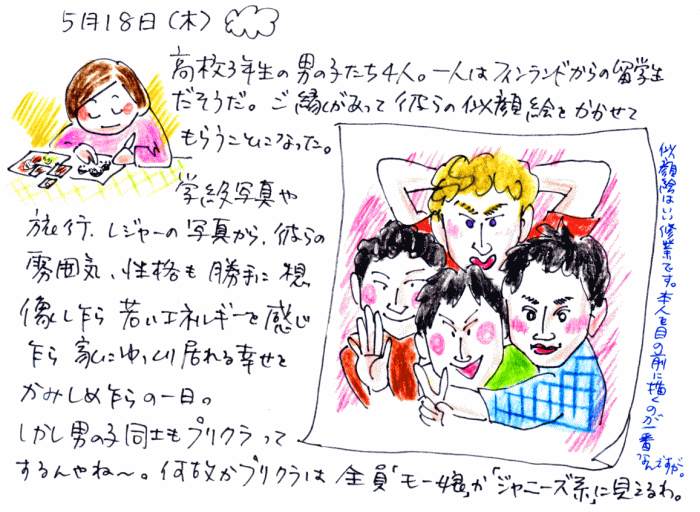 5月18日(木)
高校3年生の男の子たち4人。一人はフィンランドからの留学生
だそうだ。ご縁があって彼らの似顔絵をかかせて
もらうことになった。
学級写真や
旅行、レジャーの写真から、彼らの
雰囲気、性格も勝手に想
像し乍ら若いエネルギーを感じ
乍ら家にゆっくり居れる幸せを
かみしめ乍らの一日。
しかし男の子同士もプリクラって
するんやね〜。何故かプリクラは全員「モー娘」か「ジャニーズ系」に見えるわ。
似顔絵はいい修業です。本人を目の前に描くのが一番
なんですが。